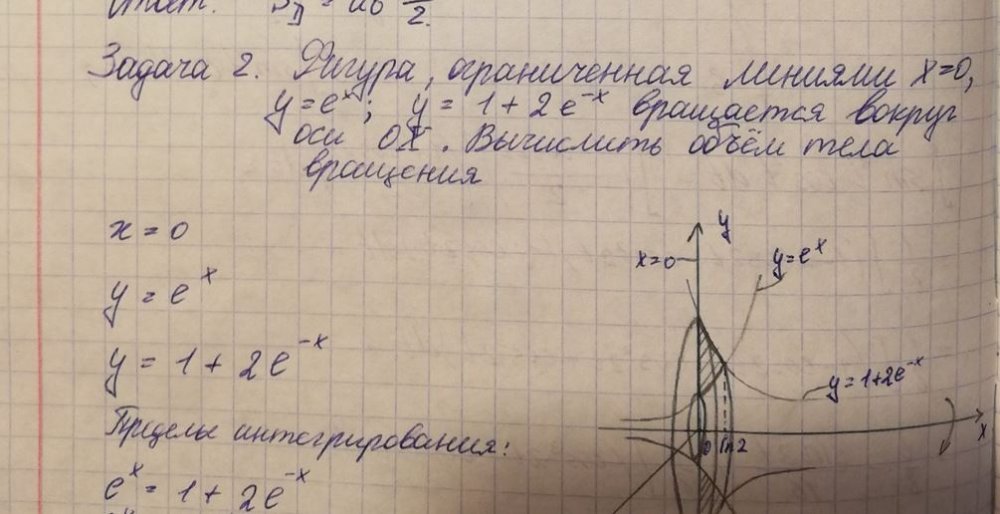 Ответ. Sп = ab π/2.
Задача 2. Фигура, ограниченная линиями x=0,
y=e^x; y = 1+2e^-x вращается вокруг
оси OX. Вычислить объём тела
вращения
x = 0
y = e^x
y = 1 + 2e^-x
Пределы интегрирования:
e^x = 1 + 2e^-x
y
x=0
y=e^x
y=1+2e^-x
0 ln2
x